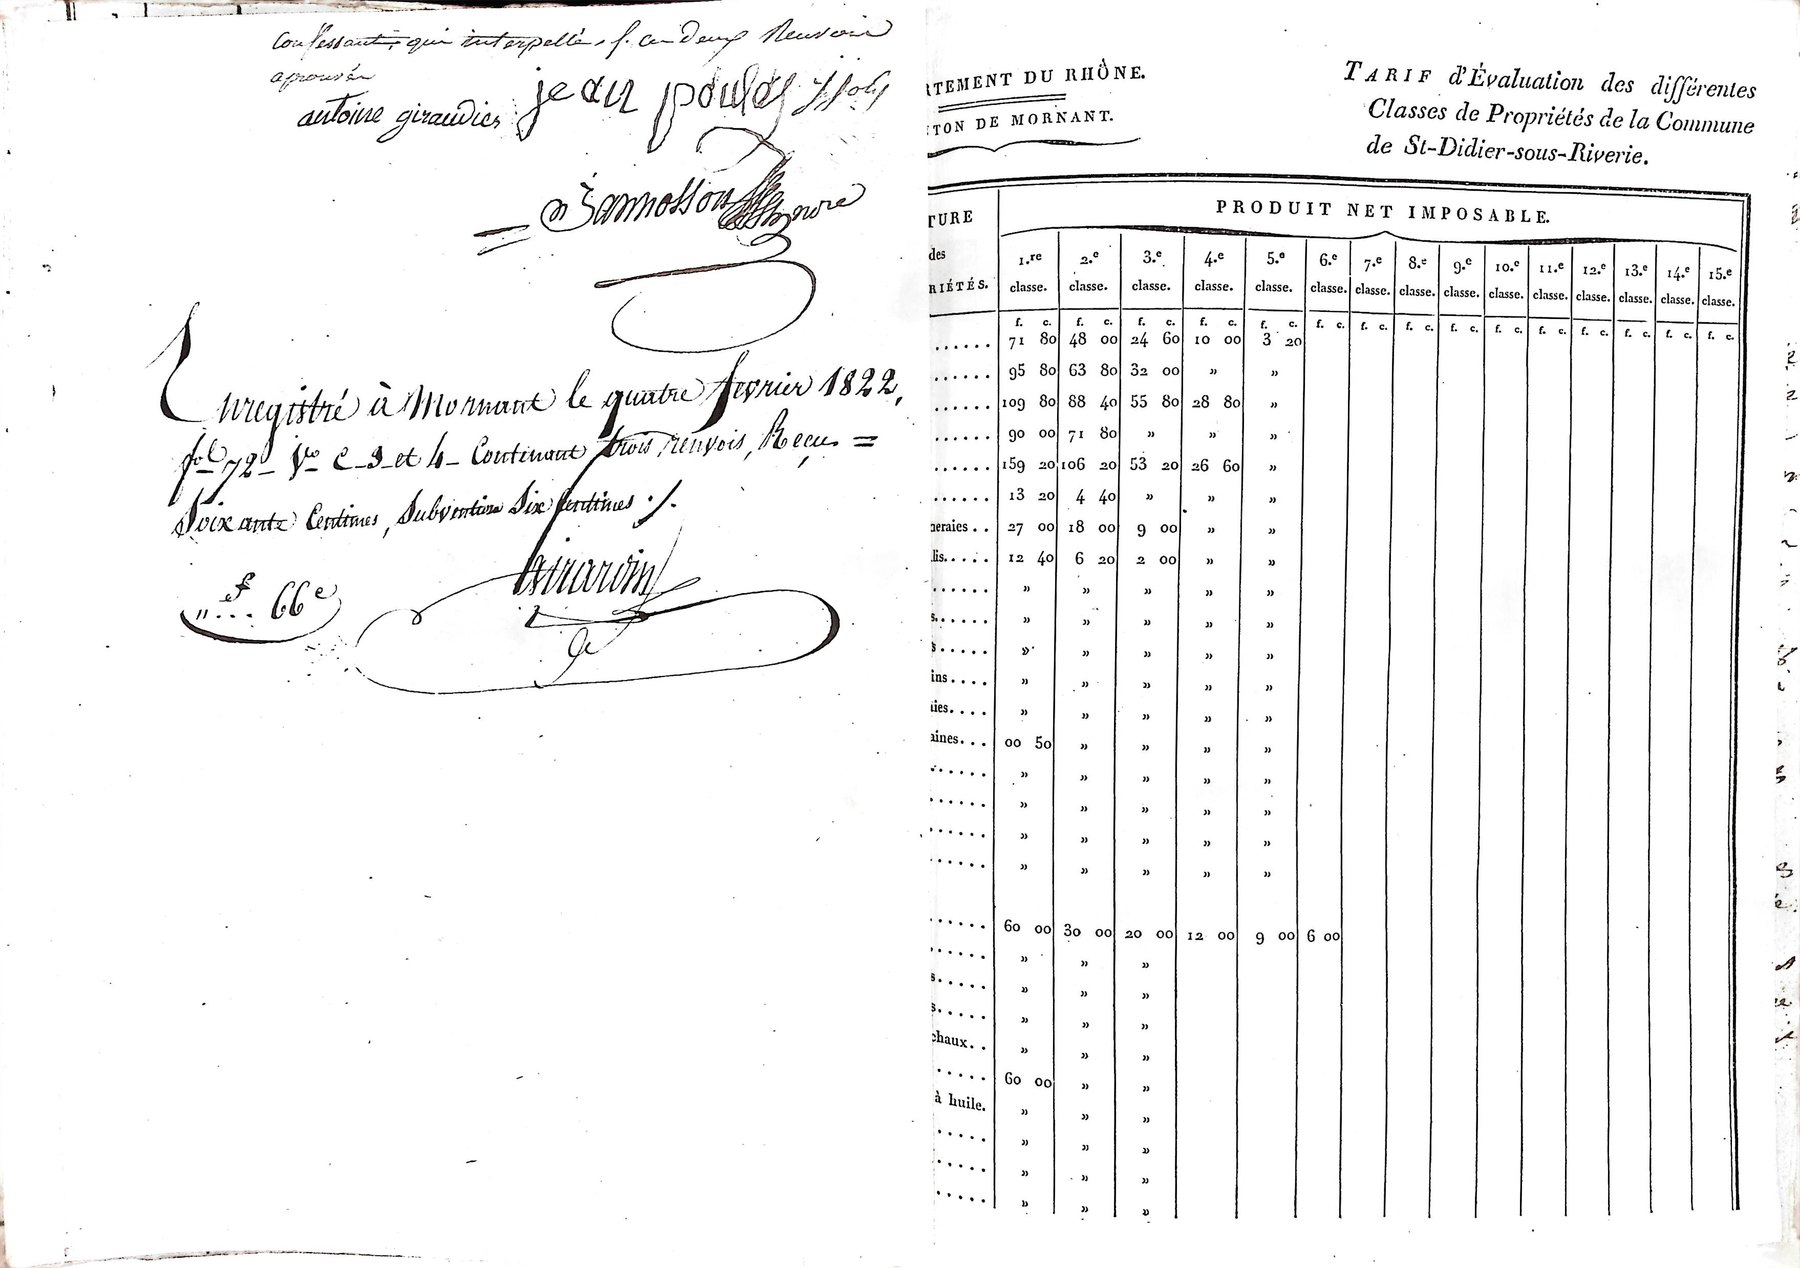 confessants, qui interpellé, f. ce deux Renvois
aprouvés
antoine giraudier jean poulat
Enregistré à Mornant le quatre février 1822,
fol. 72 Vo C. 3 et 4 Contenant trois renvois, Reçu =
Soixante Centimes, Subvention Six Centimes ./.
Girardin
" f ... 66 c
RTEMENT DU RHÔNE.
TON DE MORNANT.
TARIF d'Évaluation des différentes
Classes de Propriétés de la Commune
de St-Didier-sous-Riverie.
TURE
des
RIÉTÉS.
PRODUIT NET IMPOSABLE.
1.re 2.e 3.e 4.e 5.e 6.e 7.e 8.e 9.e 10.e 11.e 12.e 13.e 14.e 15.e
classe. classe. classe. classe. classe. classe. classe. classe. classe. classe. classe. classe. classe. classe. classe.
f. c. f. c. f. c. f. c. f. c. f. c. f. c. f. c. f. c. f. c. f. c. f. c. f. c. f. c. f. c.
...... 71 80 48 00 24 60 10 00 3 20
...... 95 80 63 80 32 00 » »
...... 109 80 88 40 55 80 28 80 »
...... 90 00 71 80 » » »
...... 159 20 106 20 53 20 26 60 »
...... 13 20 4 40 » » »
neraies.. 27 00 18 00 9 00 » »
lis..... 12 40 6 20 2 00 » »
...... » » » » »
s...... » » » » »
s..... » » » » »
ins.... » » » » »
aies.... » » » » »
aines... 00 50 » » » »
...... » » » » »
...... » » » » »
...... » » » » »
...... » » » » »
...... 60 00 30 00 20 00 12 00 9 00 6 00
...... » » »
s..... » » »
s..... » » »
chaux.. » » »
..... 60 00 » »
à huile. » » »
..... » » »
..... » » »
..... » » »